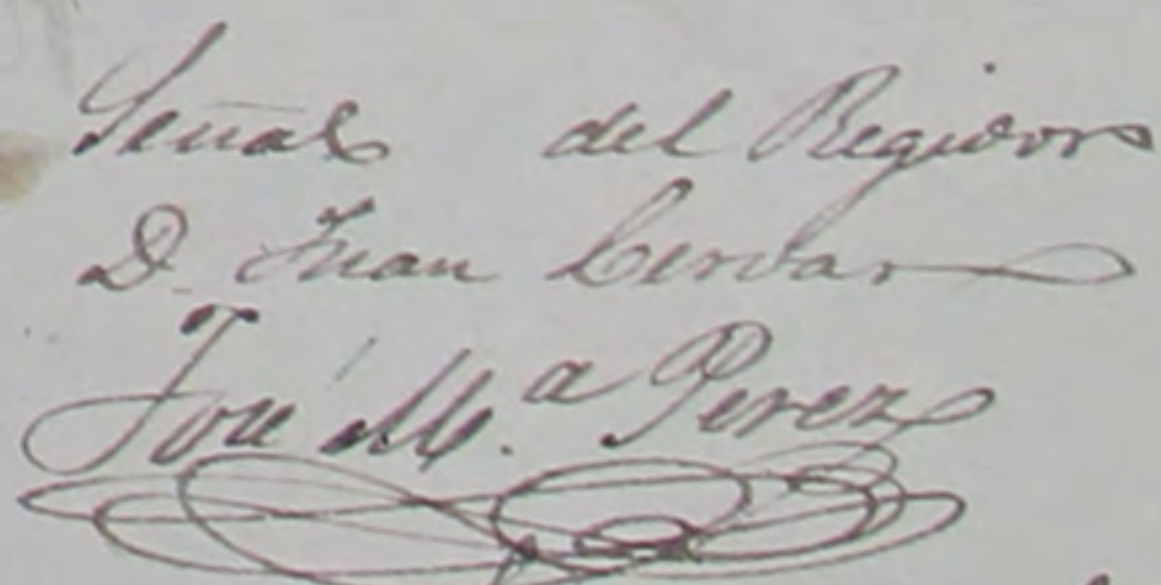 Señal del Regidor
D. Juan Cerdan
José M.ª Perez